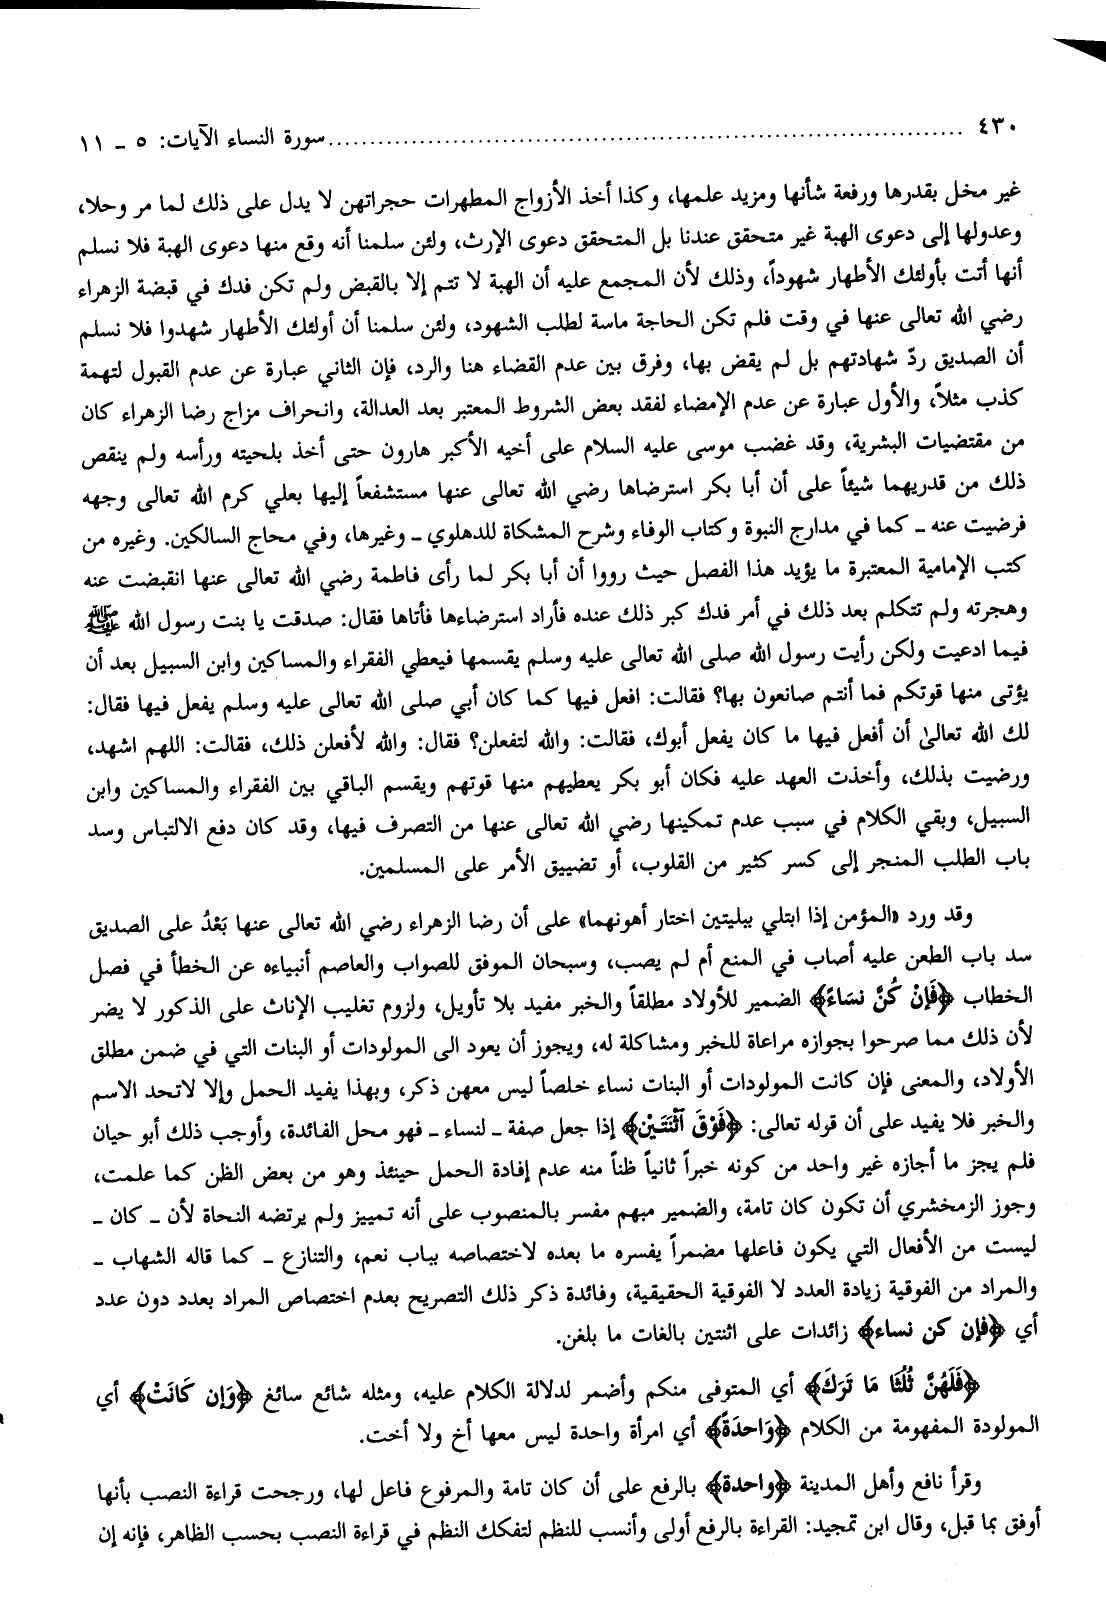 ٤٣٠ ........................ سورة النساء الآيات: ٥ ـ ١١
غير مخل بقدرها ورفعة شأنها ومزيد علمها، وكذا أخذ الأزواج المطهرات حجراتهن لا يدل على ذلك لما مر وحلا،
وعدولها إلى دعوى الهبة غير متحقق عندنا بل المتحقق دعوى الإرث، ولئن سلمنا أنه وقع منها دعوى الهبة فلا نسلم
أنها أتت بأولئك الأطهار شهوداً، وذلك لأن المجمع عليه أن الهبة لا تتم إلا بالقبض ولم تكن فدك في قبضة الزهراء
رضي الله تعالى عنها في وقت فلم تكن الحاجة ماسة لطلب الشهود، ولئن سلمنا أن أولئك الأطهار شهدوا فلا نسلم
أن الصديق ردّ شهادتهم بل لم يقض بها، وفرق بين عدم القضاء هنا والرد، فإن الثاني عبارة عن عدم القبول لتهمة
كذب مثلاً، والأول عبارة عن عدم الإمضاء لفقد بعض الشروط المعتبر بعد العدالة، وانحراف مزاج رضا الزهراء كان
من مقتضيات البشرية، وقد غضب موسى عليه السلام على أخيه الأكبر هارون حتى أخذ بلحيته ورأسه ولم ينقص
ذلك من قدريهما شيئاً على أن أبا بكر استرضاها رضي الله تعالى عنها مستشفعاً إليها بعلي كرم الله تعالى وجهه
فرضيت عنه ـ كما في مدارج النبوة وكتاب الوفاء وشرح المشكاة للدهلوي ـ وغيرها، وفي محاج السالكين. وغيره من
كتب الإمامية المعتبرة ما يؤيد هذا الفصل حيث رووا أن أبا بكر لما رأى فاطمة رضي الله تعالى عنها انقبضت عنه
وهجرته ولم تتكلم بعد ذلك في أمر فدك كبر ذلك عنده فأراد استرضاءها فأتاها فقال: صدقت يا بنت رسول الله ﷺ
فيما ادعيت ولكن رأيت رسول الله صلى الله تعالى عليه وسلم يقسمها فيعطي الفقراء والمساكين وابن السبيل بعد أن
يؤتى منها قوتكم فما أنتم صانعون بها؟ فقالت: افعل فيها كما كان أبي صلى الله تعالى عليه وسلم يفعل فيها فقال:
لك الله تعالىٰ أن أفعل فيها ما كان يفعل أبوك، فقالت: والله لتفعلن؟ فقال: والله لأفعلن ذلك، فقالت: اللهم اشهد،
ورضيت بذلك، وأخذت العهد عليه فكان أبو بكر يعطيهم منها قوتهم ويقسم الباقي بين الفقراء والمساكين وابن
السبيل، وبقي الكلام في سبب عدم تمكينها رضي الله تعالى عنها من التصرف فيها، وقد كان دفع الالتباس وسد
باب الطلب المنجر إلى كسر كثير من القلوب، أو تضييق الأمر على المسلمين.
وقد ورد «المؤمن إذا ابتلي ببليتين اختار أهونهما» على أن رضا الزهراء رضي الله تعالى عنها بَعْدُ على الصديق
سد باب الطعن عليه أصاب في المنع أم لم يصب، وسبحان الموفق للصواب والعاصم أنبياءه عن الخطأ في فصل
الخطاب ﴿فَإِنْ كُنَّ نسَاءً﴾ الضمير للأولاد مطلقاً والخبر مفيد بلا تأويل، ولزوم تغليب الإناث على الذكور لا يضر
لأن ذلك مما صرحوا بجوازه مراعاة للخبر ومشاكلة له، ويجوز أن يعود الى المولودات أو البنات التي في ضمن مطلق
الأولاد، والمعنى فإن كانت المولودات أو البنات نساء خلصاً ليس معهن ذكر، وبهذا يفيد الحمل وإلا لاتحد الاسم
والخبر فلا يفيد على أن قوله تعالى: ﴿فَوْقَ ٱثْنَتَيْن﴾ إذا جعل صفة ـ لنساء ـ فهو محل الفائدة، وأوجب ذلك أبو حيان
فلم يجز ما أجازه غير واحد من كونه خبراً ثانياً ظناً منه عدم إفادة الحمل حينئذ وهو من بعض الظن كما علمت،
وجوز الزمخشري أن تكون كان تامة، والضمير مبهم مفسر بالمنصوب على أنه تمييز ولم يرتضه النحاة لأن ـ كان ـ
ليست من الأفعال التي يكون فاعلها مضمراً يفسره ما بعده لاختصاصه بباب نعم، والتنازع ـ كما قاله الشهاب ـ
والمراد من الفوقية زيادة العدد لا الفوقية الحقيقية، وفائدة ذكر ذلك التصريح بعدم اختصاص المراد بعدد دون عدد
أي ﴿فإن كن نساء﴾ زائدات على اثنتين بالغات ما بلغن.
﴿فَلَهُنَّ ثُلُثَا مَا تَرَكَ﴾ أي المتوفى منكم وأضمر لدلالة الكلام عليه، ومثله شائع سائغ ﴿وَإِن كَانَتْ﴾ أي
المولودة المفهومة من الكلام ﴿وَاحدَةً﴾ أي امرأة واحدة ليس معها أخ ولا أخت.
وقرأ نافع وأهل المدينة ﴿واحدة﴾ بالرفع على أن كان تامة والمرفوع فاعل لها، ورجحت قراءة النصب بأنها
أوفق بما قبل، وقال ابن تمجيد: القراءة بالرفع أولى وأنسب للنظم لتفكك النظم في قراءة النصب بحسب الظاهر، فإنه إن